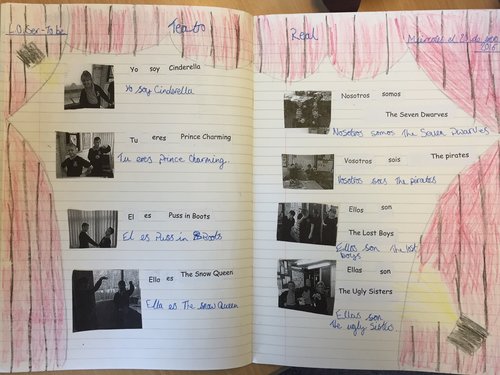 L.O. Ser - To be
Teatro
Yo soy Cinderella
Yo soy Cinderella
Tu eres Prince Charming
Tu eres Prince Charming.
El es Puss in Boots
El es Puss in Boots
Ella es The Snow Queen
Ella es The Snow Queen
Real
Miércoles el 20 de
Nosotros somos
The Seven Dwarves
Nosotros somos The Seven Dwarves
Vosotros sois The pirates
Vosotros sois The pirates
Ellos son
The Lost Boys
Ellos son The lost
Boys
Ellas son
The Ugly Sisters
Ellas son
the ugly Sisters.